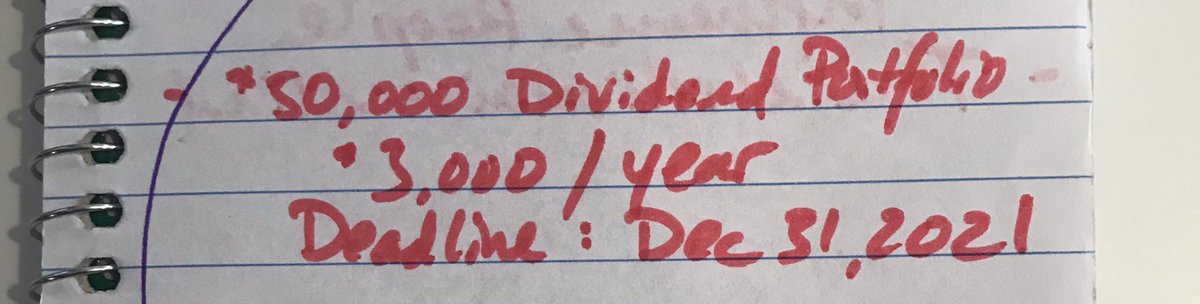 - *50,000 Dividend Portfolio -
*3,000 / year
Deadline : Dec 31, 2021